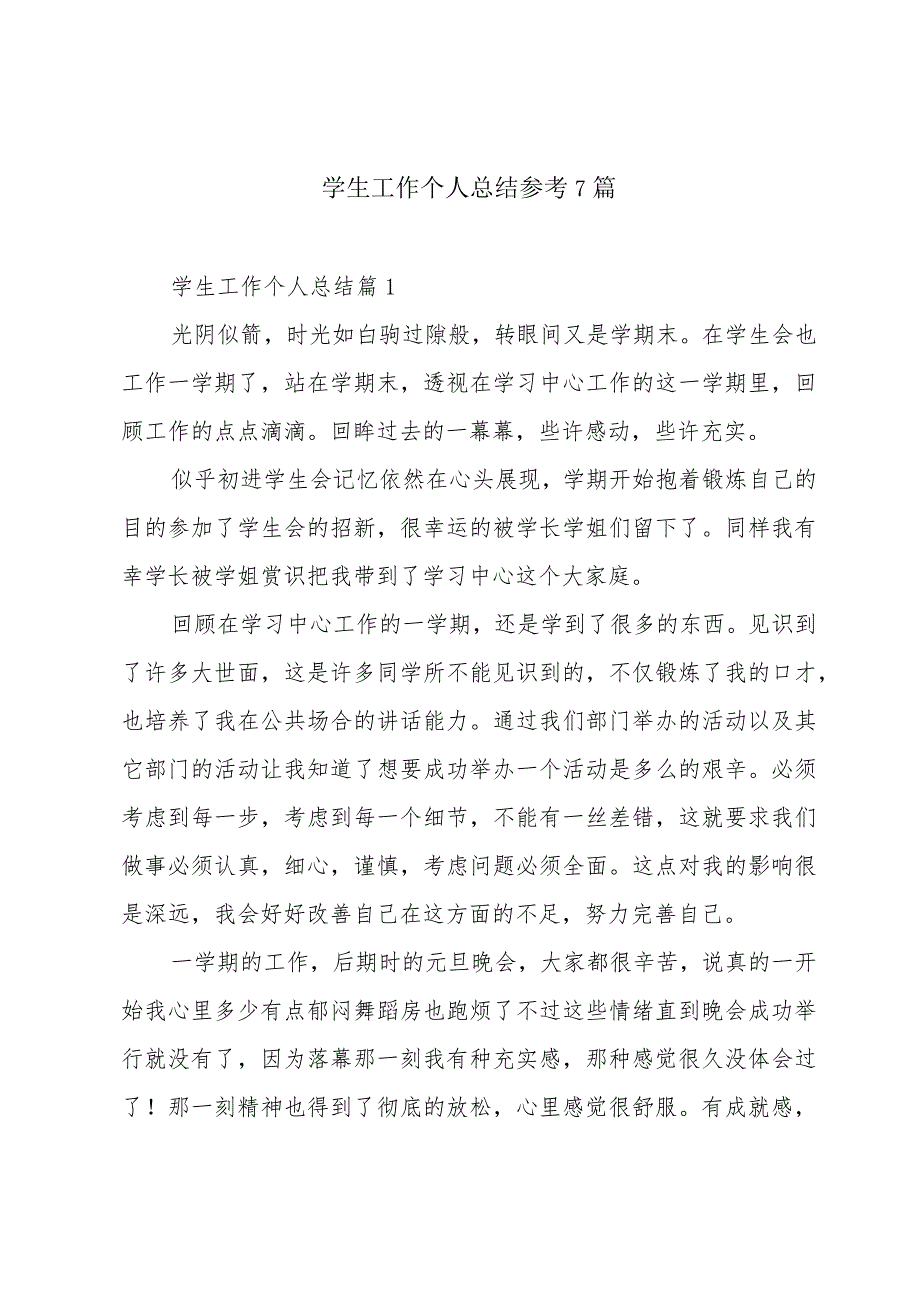 学生工作个人总结参考 7 篇
学生工作个人总结篇 1
光阴似箭，时光如白驹过隙般，转眼间又是学期末。在学生会也
工作一学期了，站在学期末，透视在学习中心工作的这一学期里，回
顾工作的点点滴滴。回眸过去的一幕幕，些许感动，些许充实。
似乎初进学生会记忆依然在心头展现，学期开始抱着锻炼自己的
目的参加了学生会的招新，很幸运的被学长学姐们留下了。同样我有
幸学长被学姐赏识把我带到了学习中心这个大家庭。
回顾在学习中心工作的一学期，还是学到了很多的东西。见识到
了许多大世面，这是许多同学所不能见识到的，不仅锻炼了我的口才，
也培养了我在公共场合的讲话能力。通过我们部门举办的活动以及其
它部门的活动让我知道了想要成功举办一个活动是多么的艰辛。必须
考虑到每一步，考虑到每一个细节，不能有一丝差错，这就要求我们
做事必须认真，细心，谨慎，考虑问题必须全面。这点对我的影响很
是深远，我会好好改善自己在这方面的不足，努力完善自己。
一学期的工作，后期时的元旦晚会，大家都很辛苦，说真的一开
始我心里多少有点郁闷舞蹈房也跑烦了不过这些情绪直到晚会成功举
行就没有了，因为落幕那一刻我有种充实感，那种感觉很久没体会过
了！那一刻精神也得到了彻底的放松，心里感觉很舒服。有成就感，